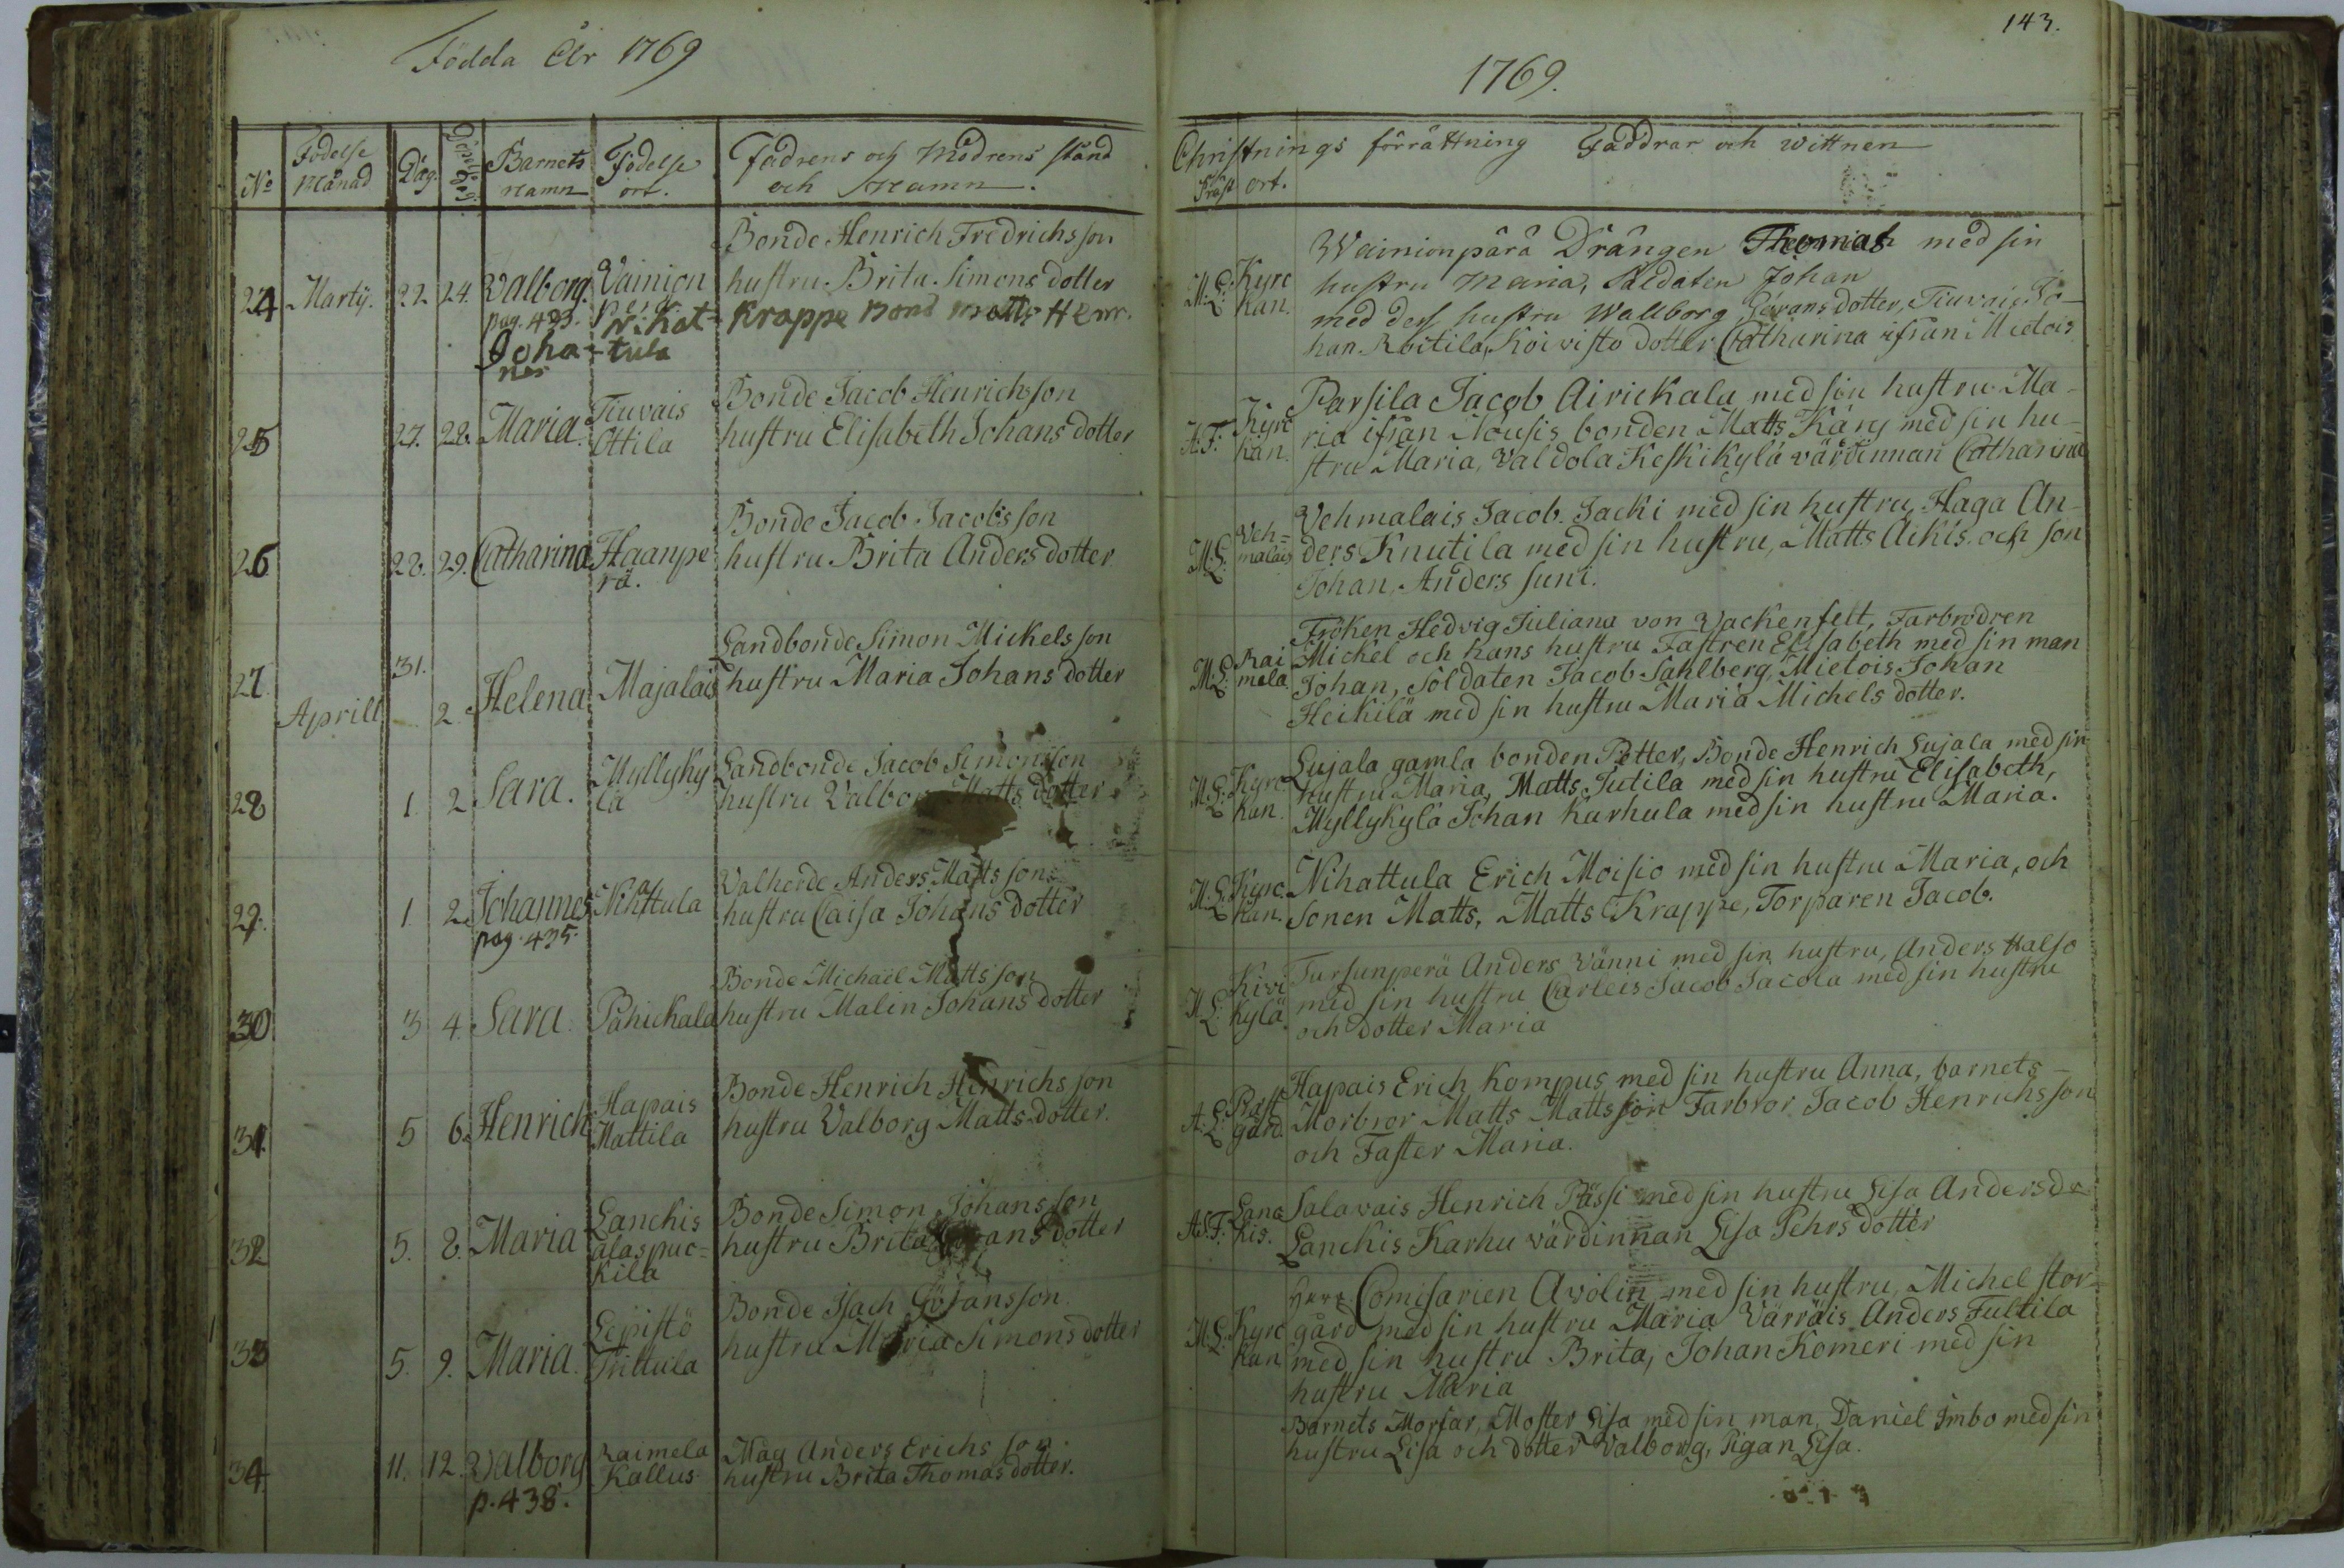 Födda År 1769
No
Födelse
Månad
Dag.
Döpelse
Dag.
Barnets
namn
Födelse
ort.
Fadrens och Modrens stånd
och Namn.
24 Martÿ. 22 24. Valborg.
pag. 433.
Johan-
nes
Vainion
perä
Nihat-
tula
Bonde Henrich Fredrichsson
hustru Brita Simons dotter
Krappe Bond Matts Henr.
25 27. 28. Maria.
Tiuvais
Ottila
Bonde Jacob Henrichsson
hustru Elisabeth Johans dotter
26 28. 29. Catharina
Haanpe
rä.
Bonde Jacob Jacobsson
hustru Brita Anders dotter
27. 31.
Aprill 2. Helena Majalais
Landbonde Simon Mickelsson
hustru Maria Johans dotter
28 1. 2 Sara.
Myllyky
lä
Landbonde Jacob Simonsson
hustru Valbor Matts dotter
29. 1. 2. Johannes
pag. 435.
Nihattula
Valherde Anders Mattsson
hustru Caisa Johans dotter
30. 3 4. Sara Pahickala
Bonde Michael Mattsson
hustru Malin Johans dotter
31. 5 6. Henrich
Hapais
Mattila
Bonde Henrich Henrichsson
hustru Valborg Matts dotter.
32 5. 8. Maria
Lanckis
alaspuc=
kila
Bonde Simon Johansson
hustru Brita Görans dotter
33 5. 9. Maria.
Lepistö
Trittula
Bonde Isach Göransson.
hustru Maria Simons dotter
34. 11. 12. Valborg
p. 438.
Raimela
Kallus
Måg Anders Erichsson.
hustru Brita Thomas dotter.
143.
1769.
Christnings förrättning Faddrar och wittnen
Präst ort.
M:L: Kyrc
kan.
Wainionpärä Drängen Thomas med sin
hustru Maria, Soldaten Johan
med dess hustru Wallborg Görans dotter, Tiuvais Jo-
han Roitila, Koivisto dotter Catharina ifrån Mietois
A:F: Kyrc
kan.
Parsila Jacob Airickala med sin hustru Ma-
ria ifrån Nousis bonden Matts Käng med sin hu-
stru Maria, Valdola Keskikylä värdinnan Catharina
M:L: Veh=
malais
Vehmalais Jacob Jacki med sin hustru, Haga An-
ders Knutila med sin hustru, Matts Äckis och son
Johan, Anders Suni.
M:L: Rai
mela
Fröken Hedvig Juliana von Vackenfelt, Farbrodren
Michel och hans hustru Fastren Elisabeth med sin man
Johan, Soldaten Jacob Sahlberg, Mietois Johan
Heikilä med sin hustru Maria Michels dotter.
M:L: Kyrc
kan.
Lujala gamla bonden Petter, Bonde Henrich Lujala med sin
hustru Maria, Matts Jutila med sin hustru Elisabeth,
Myllykylä Johan Karhula med sin hustru Maria.
M:L: Kyrc
kan.
Nihattula Erich Moisio med sin hustru Maria, och
Sonen Matts, Matts Krappe, Torparen Jacob.
M:L: Kivi
kylä
Tursunperä Anders Vänni med sin hustru, Anders Halso
med sin hustru Carleis Jacob Jacola med sin hustru
och dotter Maria
A:L: Prest
gård.
Hapais Erich Kompus med sin hustru Anna, barnets
Morbror Matts Mattsson Farbror Jacob Henrichsson
och Faster Maria.
A:F: Lanc
kis.
Salavais Henrich Pässi med sin hustru Lisa Andersdr
Lanckis Karhu värdinnan Lisa Pehrs dotter
M:L: Kyrc
kan
Herr Comisarien Avolin med sin hustru, Michel stor-
gård med sin hustru Maria Värräis Anders Tultila
med sin hustru Brita, Johan Komeri med sin
hustru Maria
Barnets Morfar, Moster Lisa med sin man, Daniel Imbo med sin
hustru Lisa och dotter Valborg, Pigan Lisa.